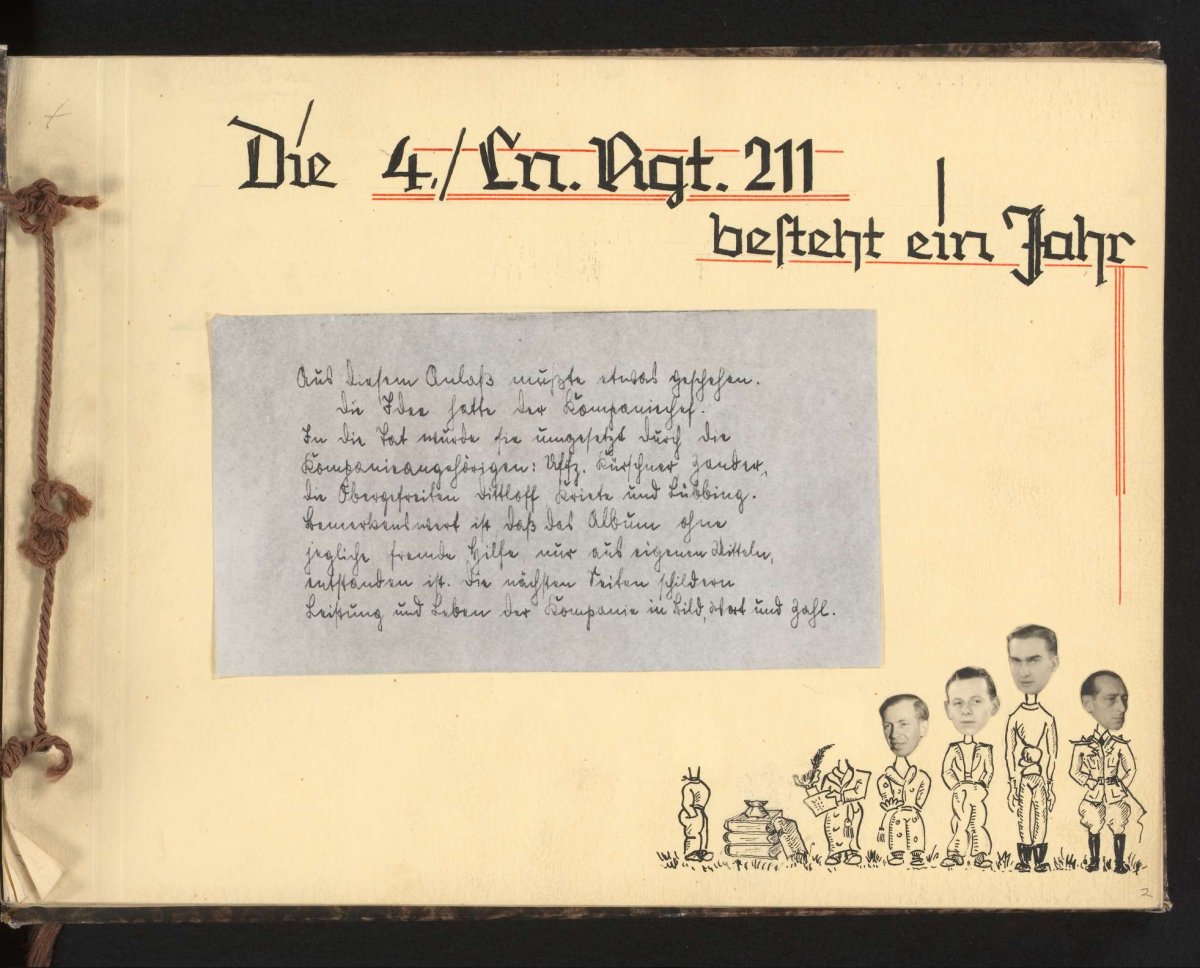 Die 4./Ln. Rgt. 211
besteht ein Jahr
Aus diesem Anlaß mußte etwas geschehen.
Die Idee hatte der Kompaniechef.
In die Tat wurde sie umgesetzt durch die
Kompanieangehörigen: Uffz. Kürschner Zander,
die Obergefreiten Dittloff Kriete und Lübbing.
Bemerkenswert ist daß das Album ohne
jegliche fremde Hilfe, nur aus eigenen Mitteln,
entstanden ist. Die nächsten Seiten schildern
Leistung und Leben der Kompanie in Bild, Wort und Zahl.
2